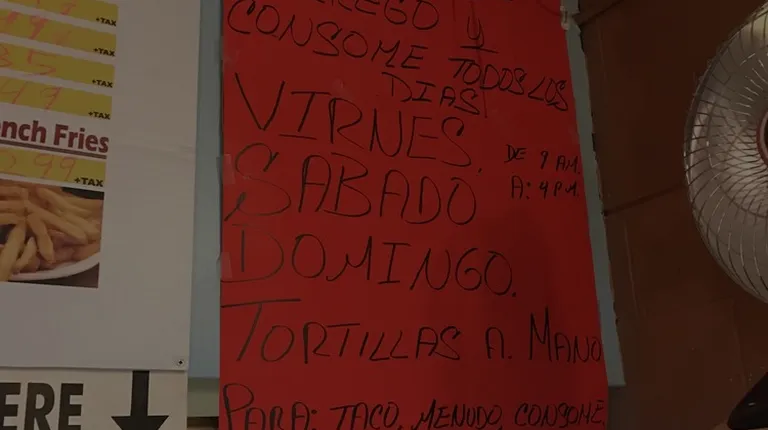 +TAX
+TAX
+TAX
+TAX
ench Fries
2.99 +TAX
ERE
CONSOME TODOS LOS
DIAS
VIRNES.
SABADO
DOMINGO.
DE 9 AM.
A: 4 P.M.
TORTILLAS A. MANO
PARA: TACO, MENUDO, CONSOME,